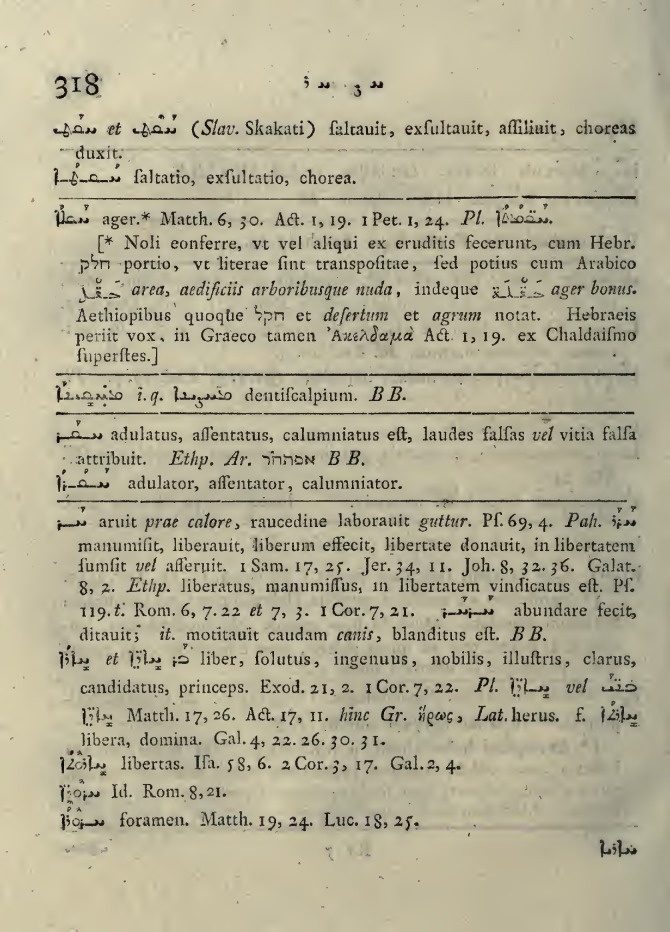 318
et (Slav. Skakati) ſaltauit, exſultauit, aſſiliuit, choreas
duxit.
ſaltatio, exſultatio, chorea.
ܚܩܠܐ ager.* Matth. 6, 30. Act. 1, 19. 1 Pet. 1, 24. Pl. ܚܩܠܬܐ.
[* Noli eonferre, vt vel aliqui ex eruditis fecerunt, cum Hebr.
חלק portio, vt literae ſint transpoſitae, ſed potius cum Arabico
area, aedificiis arboribusque nuda, indeque ager bonus.
Aethiopibus quoque חקל et deſertum et agrum notat. Hebraeis
periit vox, in Graeco tamen Ἀκελδαμὰ Act. 1, 19. ex Chaldaiſmo
ſuperſtes.]
i. q. dentiſcalpium. B B.
ܚܩܪ adulatus, aſſentatus, calumniatus eſt, laudes falſas vel vitia falſa
attribuit. Ethp. Ar. B B.
ܚܩܪܐ adulator, aſſentator, calumniator.
ܚܪ aruit prae calore, raucedine laborauit guttur. Pſ. 69, 4. Pah. ܚܪܪ
manumiſit, liberauit, liberum effecit, libertate donauit, in libertatem
ſumſit vel aſſeruit. 1 Sam. 17, 25. Jer. 34, 11. Joh. 8, 32. 36. Galat.
8, 2. Ethp. liberatus, manumiſſus, in libertatem vindicatus eſt. Pſ.
119. t. Rom. 6, 7. 22 et 7, 3. 1 Cor. 7, 21. ܚܪܚܪ abundare fecit,
ditauit; it. motitauit caudam canis, blanditus eſt. B B.
ܚܐܪܐ et ܒܪ ܚܐܪܐ liber, ſolutus, ingenuus, nobilis, illuſtris, clarus,
candidatus, princeps. Exod. 21, 2. 1 Cor. 7, 22. Pl. ܚܐܪܐ vel ܒܢܝ
ܚܐܪܐ Matth. 17, 26. Act. 17, 11. hinc Gr. ἥρως, Lat. herus. f. ܚܐܪܬܐ
libera, domina. Gal. 4, 22. 26. 30. 31.
ܚܐܪܘܬܐ libertas. Iſa. 58, 6. 2 Cor. 3, 17. Gal. 2, 4.
ܚܪܘܪܐ Id. Rom. 8, 21.
ܚܪܘܪܐ foramen. Matth. 19, 24. Luc. 18, 25.